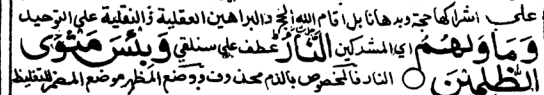 على اشراكها حجة وبرهانا بل اقام الله الحجج والبراهين العقلية والنقلية على التوحيد
وَمَأْوَىٰهُمُ اي المشركين النَّارُ عطف على سنلقي وَبِئْسَ مَثْوَى
الظّٰلِمِينَ النار فالمخصوص بالذم محذوف ووضع المظهر موضع المضمر للتغليظ